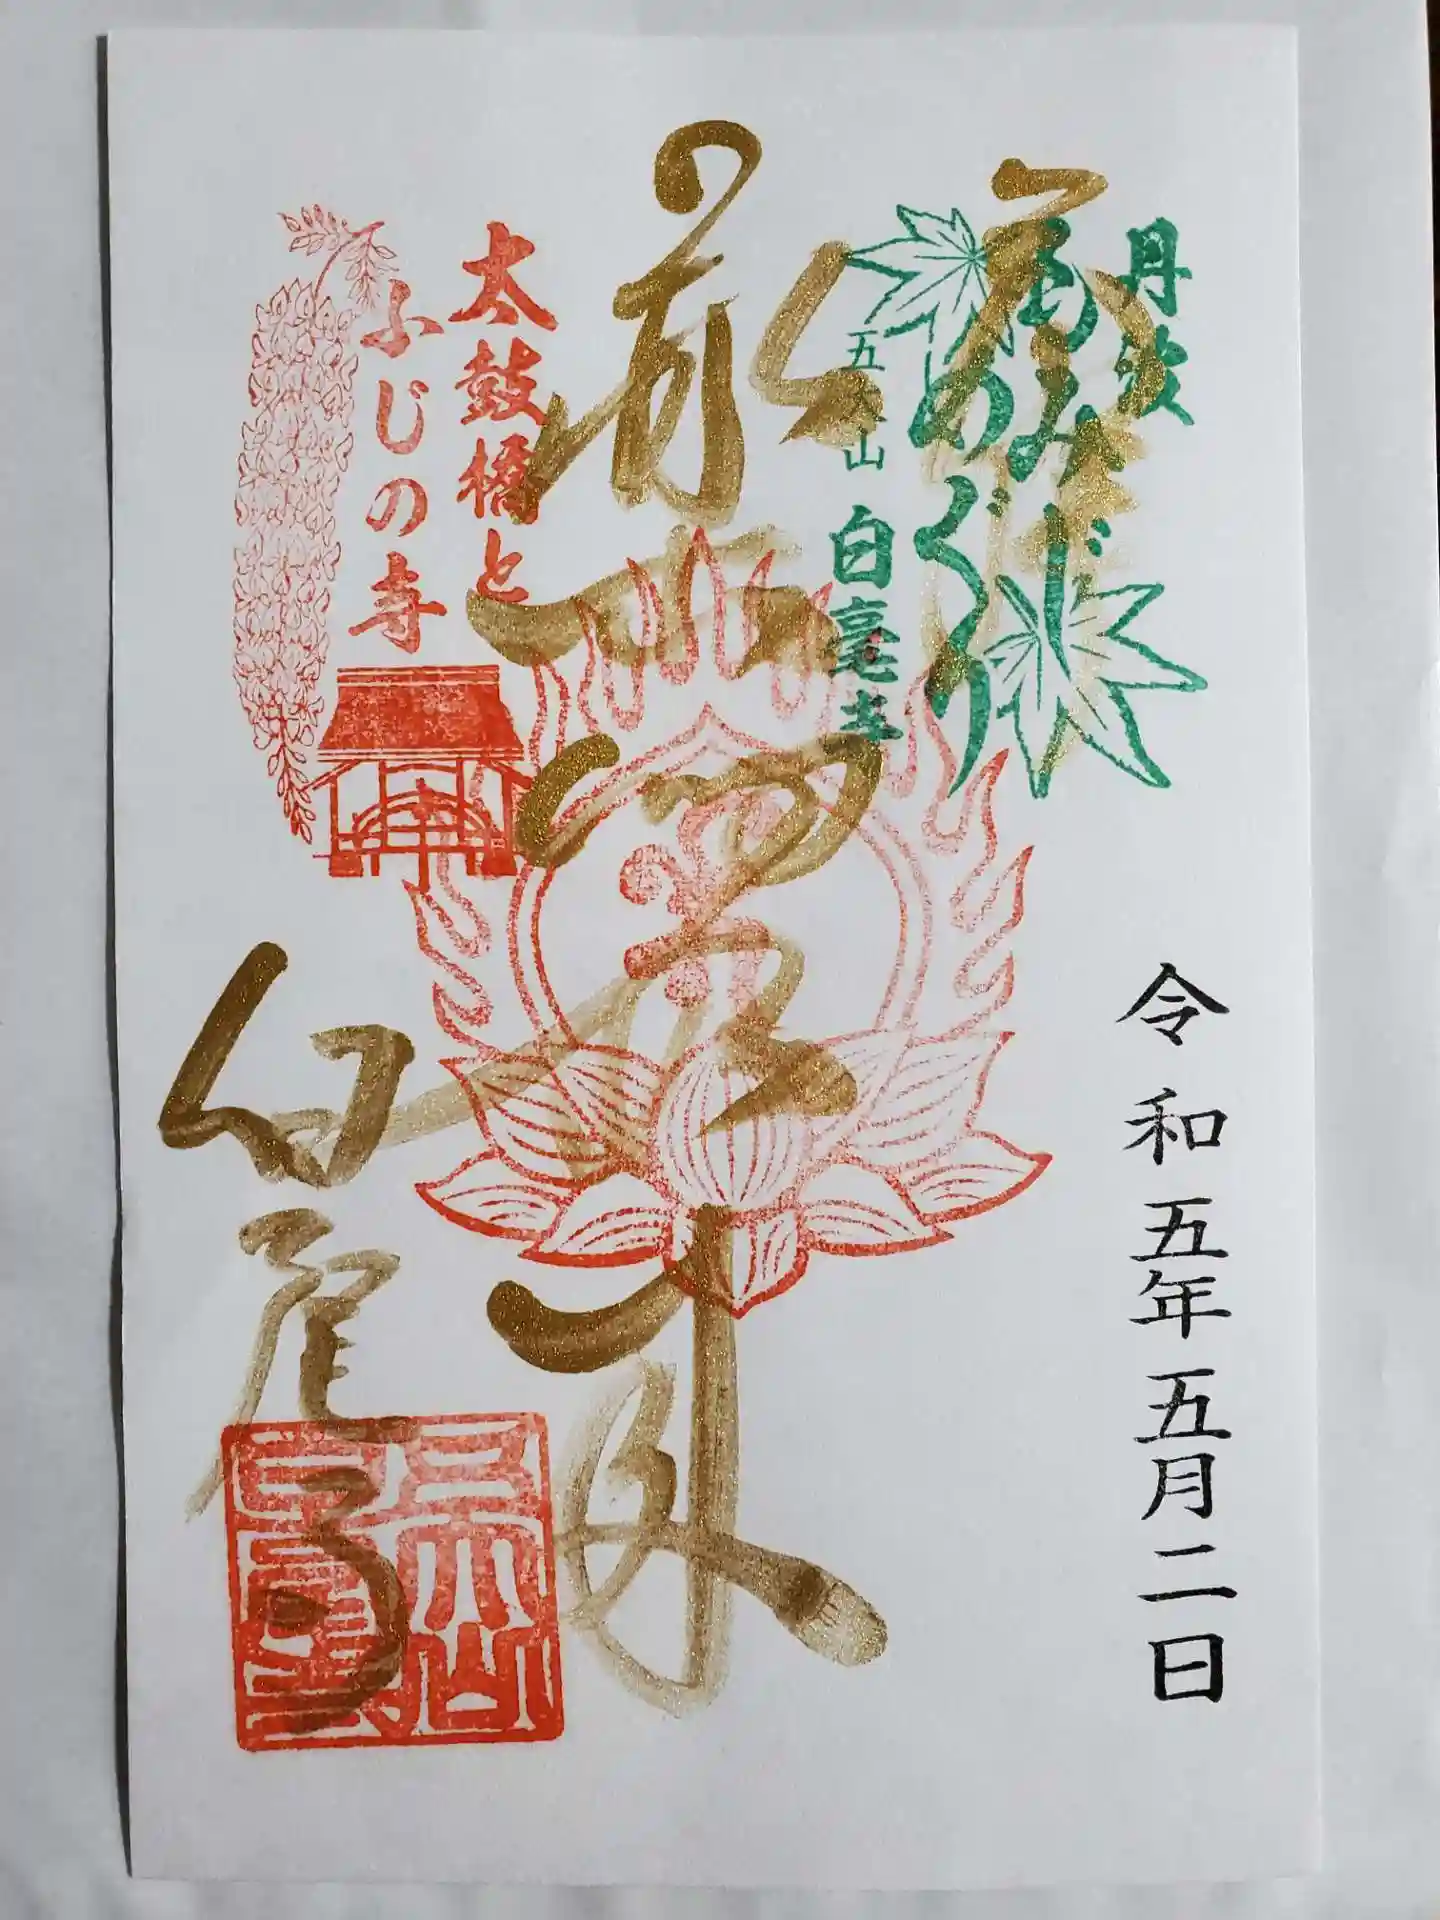 丹波
もみじ
めぐり
五大山 白毫寺
薬師如来
太鼓橋と
ふじの寺
白毫寺
令和五年五月二日